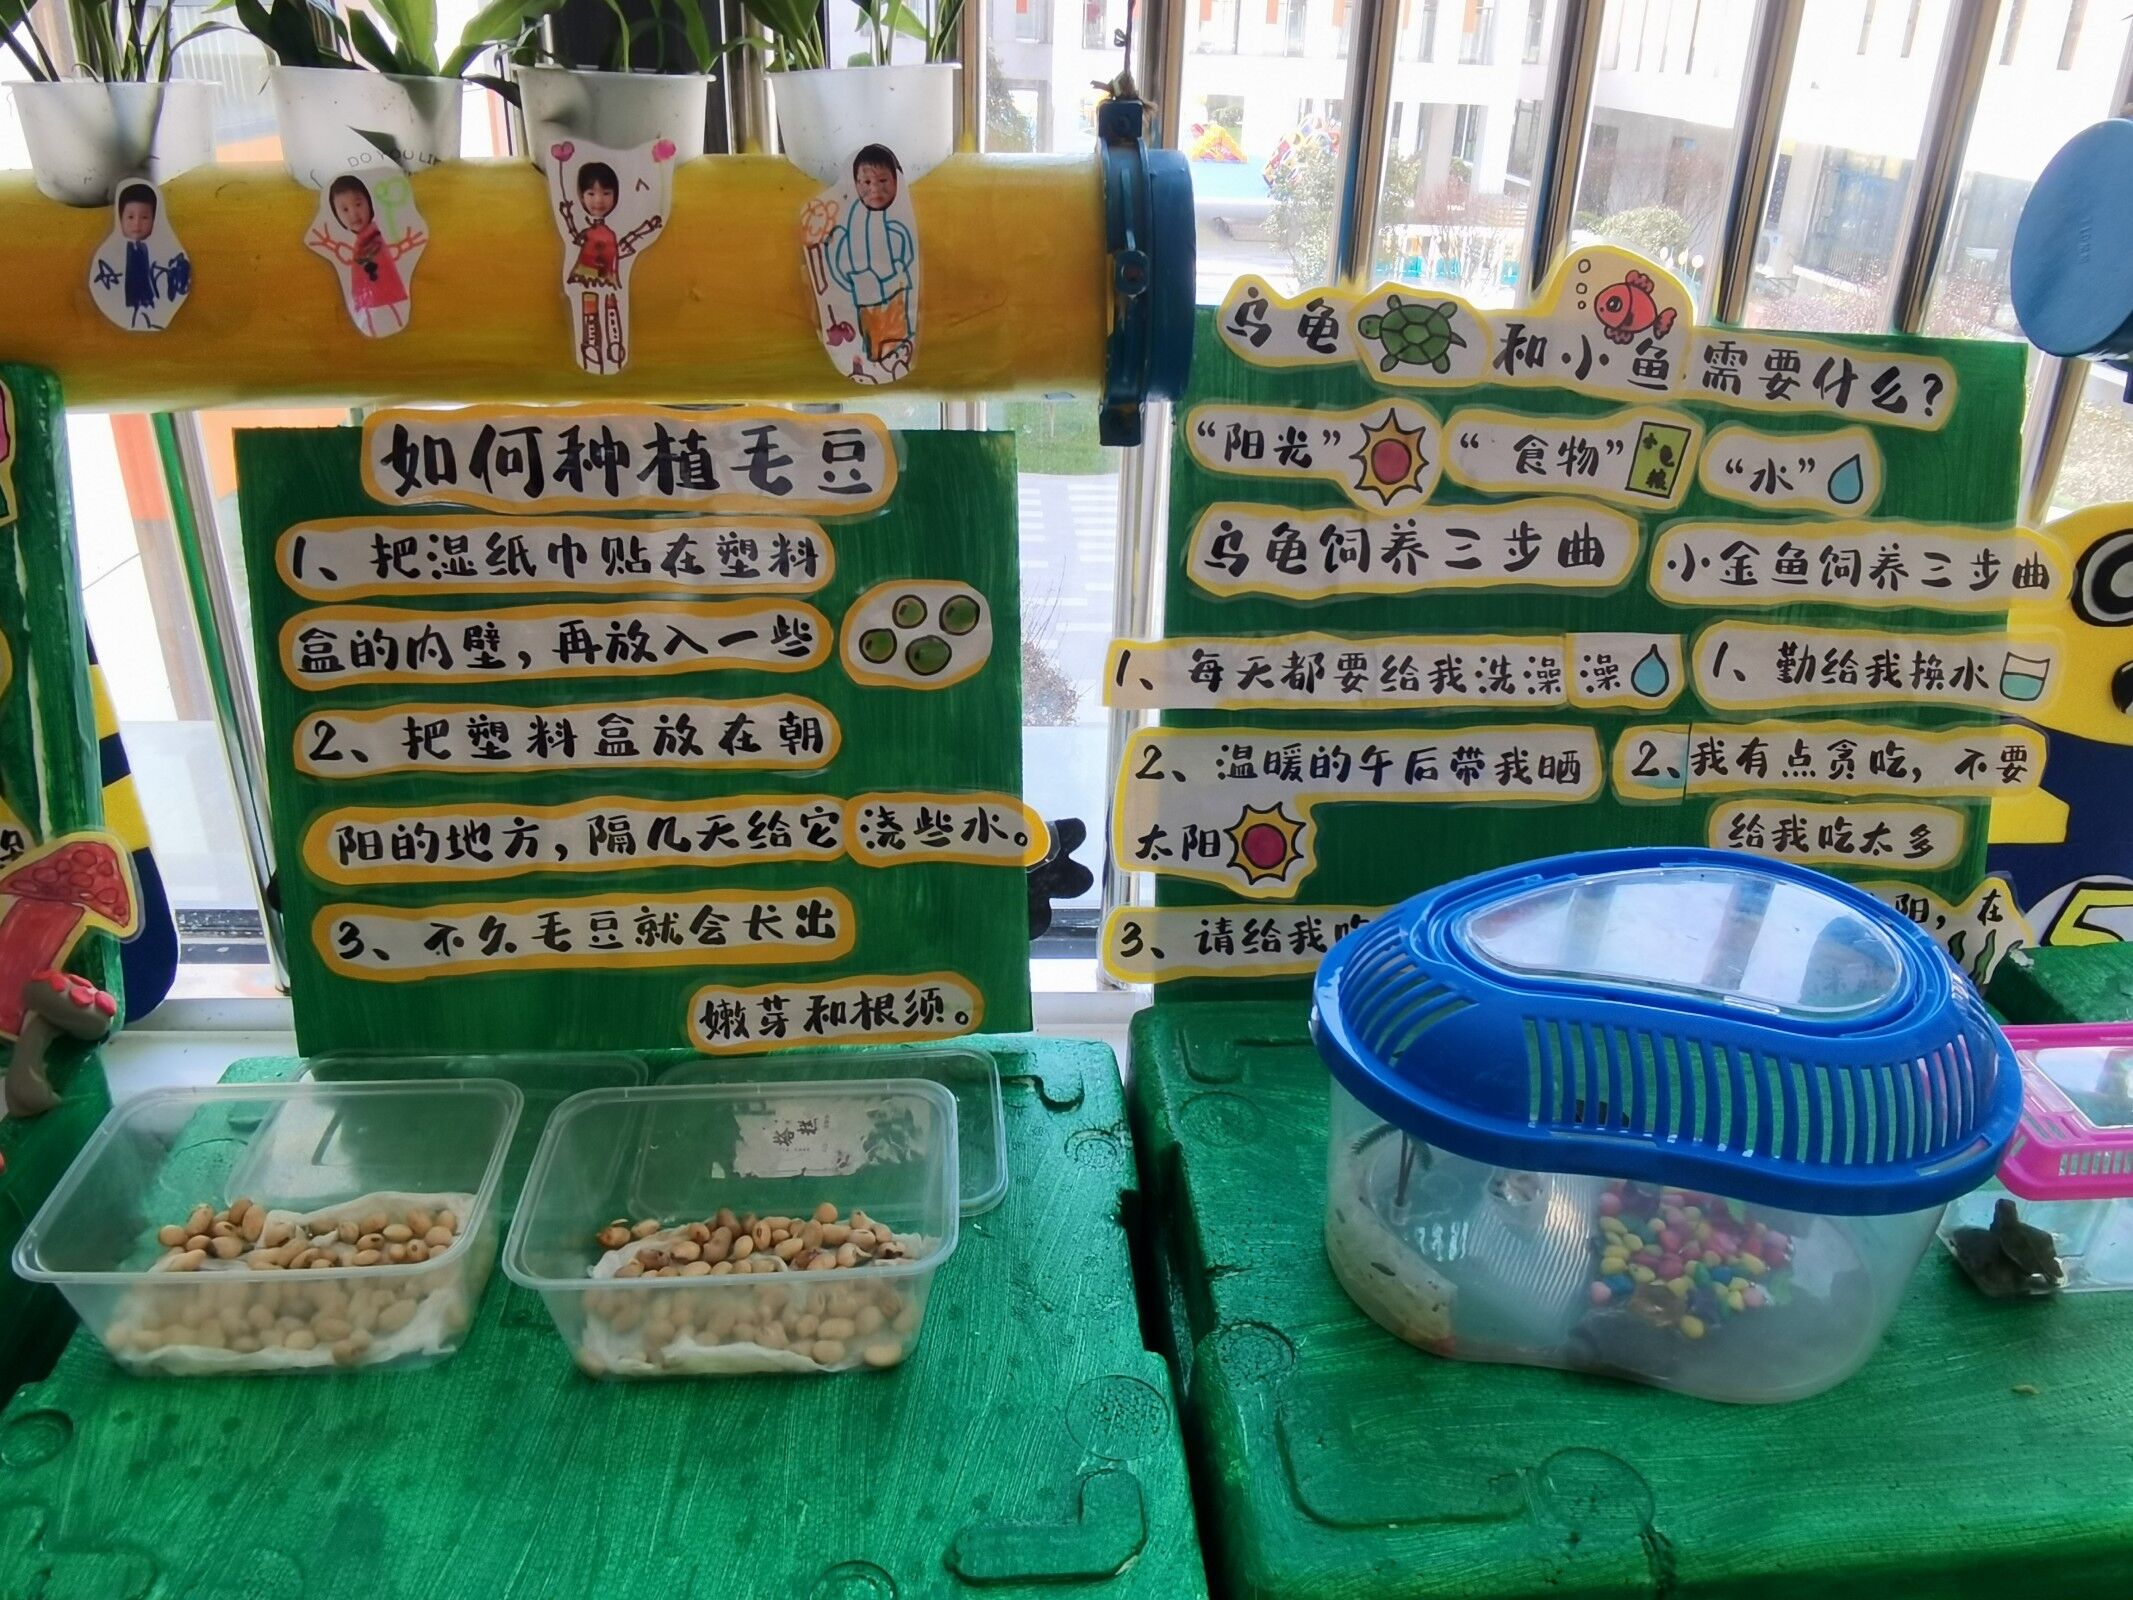 DO YOU LI
如何种植毛豆
1、把湿纸巾贴在塑料
盒的内壁，再放入一些
2、把塑料盒放在朝
阳的地方，隔几天给它浇些水。
3、不久毛豆就会长出
嫩芽和根须。
乌龟和小鱼需要什么？
“阳光” “食物” “水”
乌龟饲养三步曲
1、每天都要给我洗澡澡
2、温暖的午后带我晒
太阳
3、请给我吃
小金鱼饲养三步曲
1、勤给我换水
2、我有点贪吃，不要
给我吃太多
阳，在